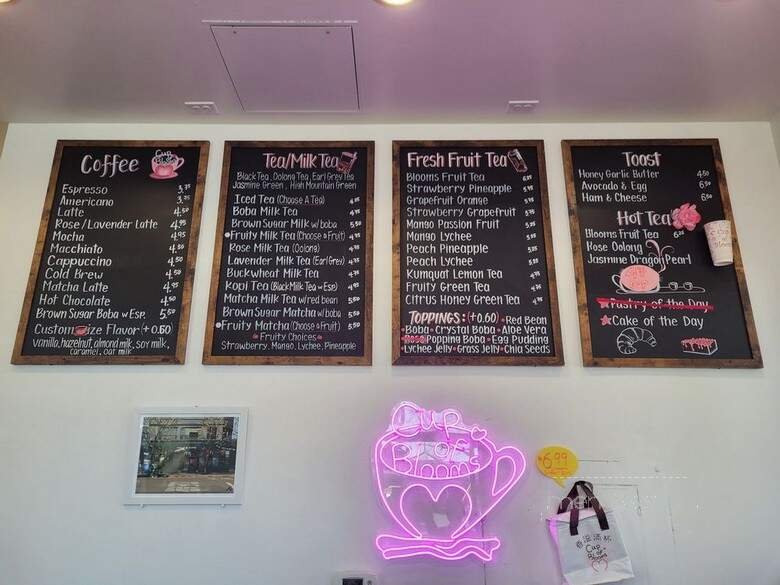 Coffee
Cup of Blooms
Espresso 3.75
Americano 3.75
Latte 4.50
Rose/Lavender Latte 4.95
Mocha 4.95
Macchiato 4.50
Cappuccino 4.50
Cold Brew 4.50
Matcha Latte 4.95
Hot Chocolate 4.50
Brown Sugar Boba w Esp. 5.50
Customize Flavor (+0.50)
vanilla, hazelnut, almond milk, soy milk,
caramel, oat milk
Tea/Milk Tea
Black Tea, Oolong Tea, Earl Grey Tea
Jasmine Green, High Mountain Green
Iced Tea (Choose A Tea)
Boba Milk Tea
Brown Sugar Milk w/boba 5.50
Fruity Milk Tea (Choose a Fruit)
Rose Milk Tea (Oolong)
Lavender Milk Tea (Earl Grey)
Buckwheat Milk Tea
Kopi Tea (Black Milk Tea w Esp)
Matcha Milk Tea w/red bean
Brown Sugar Matcha w/boba
Fruity Matcha (Choose a Fruit) 5.50
Fruity Choices
Strawberry, Mango, Lychee, Pineapple
Fresh Fruit Tea
Blooms Fruit Tea
Strawberry Pineapple
Grapefruit Orange
Strawberry Grapefruit
Mango Passion Fruit
Mango Lychee
Peach Pineapple
Peach Lychee
Kumquat Lemon Tea
Fruity Green Tea
Citrus Honey Green Tea
TOPPINGS: (+0.60) Red Bean
Boba Crystal Boba Aloe Vera
Popping Boba Egg Pudding
Lychee Jelly Grass Jelly Chia Seeds
Toast
Honey Garlic Butter 4.50
Avocado & Egg 6.50
Ham & Cheese 6.50
Hot Tea
Blooms Fruit Tea 6.25
Rose Oolong
Jasmine Dragon Pearl
Pastry of the Day
Cake of the Day
Cup of Blooms
Cup
of
Blooms
6.99
Cup
of
Blooms